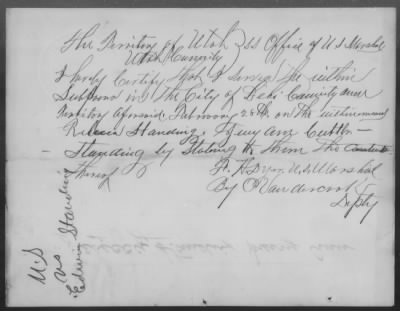 The Territory of Utah } SS Office of U S Marshal
Utah County
I herby Certify that I served the within
Subpoena in the City of Lehi County and
Territory aforesaid February 25th on the within named
Standing,
Standing by Stating to them the Contents
thereof
U.S. Marshal
By Vandercook
Depty
U.S
vs
Edwin Standing